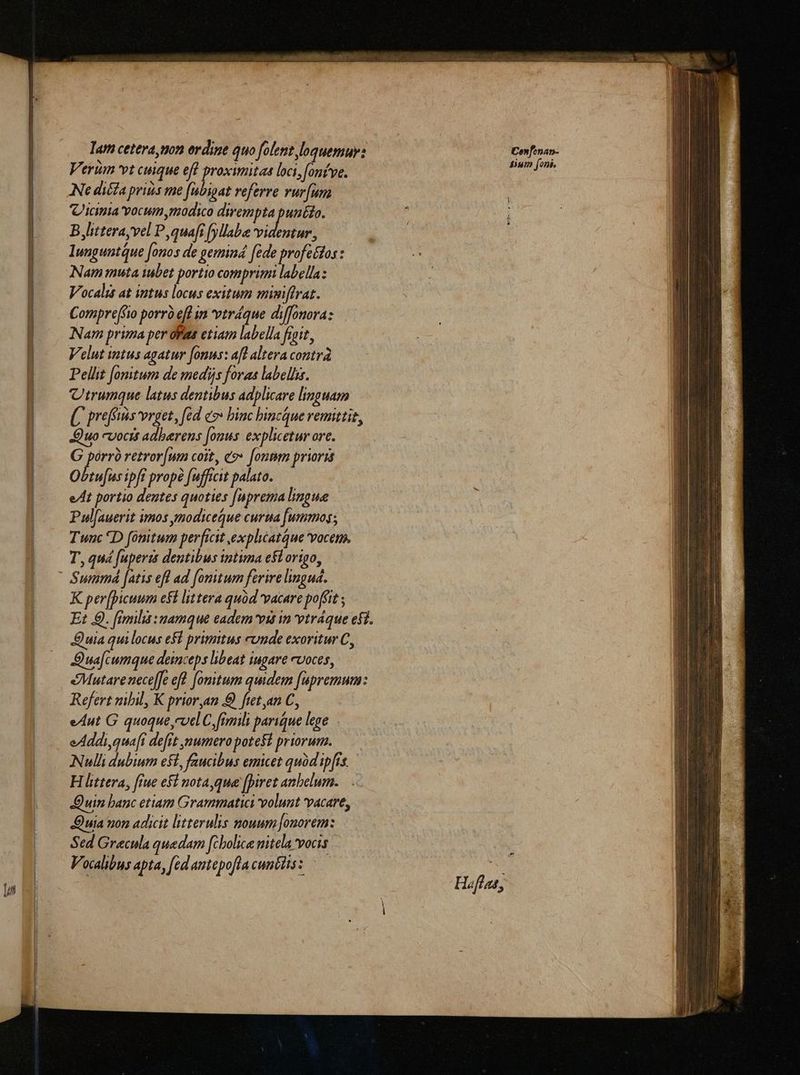 Iam cetera, non ordine quo ſolent, loquemur:
Verùm vt cuique eſt proximitas loci, ſoníve.
Ne dicta priùs me ſubigat referre rurſum
Vicinia vocum, modico dirempta puncto.
B, littera, vel P, quaſi ſyllabæ videntur,
Iunguntque ſonos de geminá ſede profectos:
Nam muta iubet portio comprimi labella:
Vocalis at intus locus exitum miniſtrat.
Compreſſio porrò eſt in vtráque diſſonora:
Nam prima per oras etiam labella figit,
Velut intus agatur ſonus: aſt altera contrà
Pellit ſonitum de medijs foras labellis.
Vtrumque latus dentibus adplicare linguam
C preſſiùs vrget, ſed & hinc hincque remittit,
Quo vocis adhærens ſonus explicetur ore.
G porrò retrorſum coit, & ſonum prioris
Obtuſius ipſi propè ſufficit palato.
At portio dentes quoties ſuprema linguæ
Pulſauerit imos, modiceque curua ſummos;
Tunc D ſonitum perficit, explicatque vocem.
T, quá ſuperis dentibus intima eſt origo,
Summá ſatis eſt ad ſonitum ferire linguá.
K perſpicuum eſt littera quòd vacare poſſit;
Et Q. ſimilis: namque eadem vis in vtráque eſt.
Quia qui locus eſt primitus vnde exoritur C,
Quaſcumque deinceps libeat iugare voces,
Mutare neceſſe eſt ſonitum quidem ſupremum:
Refert nihil, K prior, an Q ſiet, an C,
Aut G quoque, vel C, ſimili parique lege
Addi, quaſi deſit, numero poteſt priorum.
Nulli dubium eſt, faucibus emicet quòd ipſis
H littera, ſiue eſt nota, quæ ſpiret anhelum.
Quin hanc etiam Grammatici volunt vacare,
Quia non adicit litterulis nouum ſonorem:
Sed Græcula quædam ſcholicæ nitela vocis
Vocalibus apta, ſed antepoſta cunctis:
Haſtas,
Conſonan-
tium ſoni.